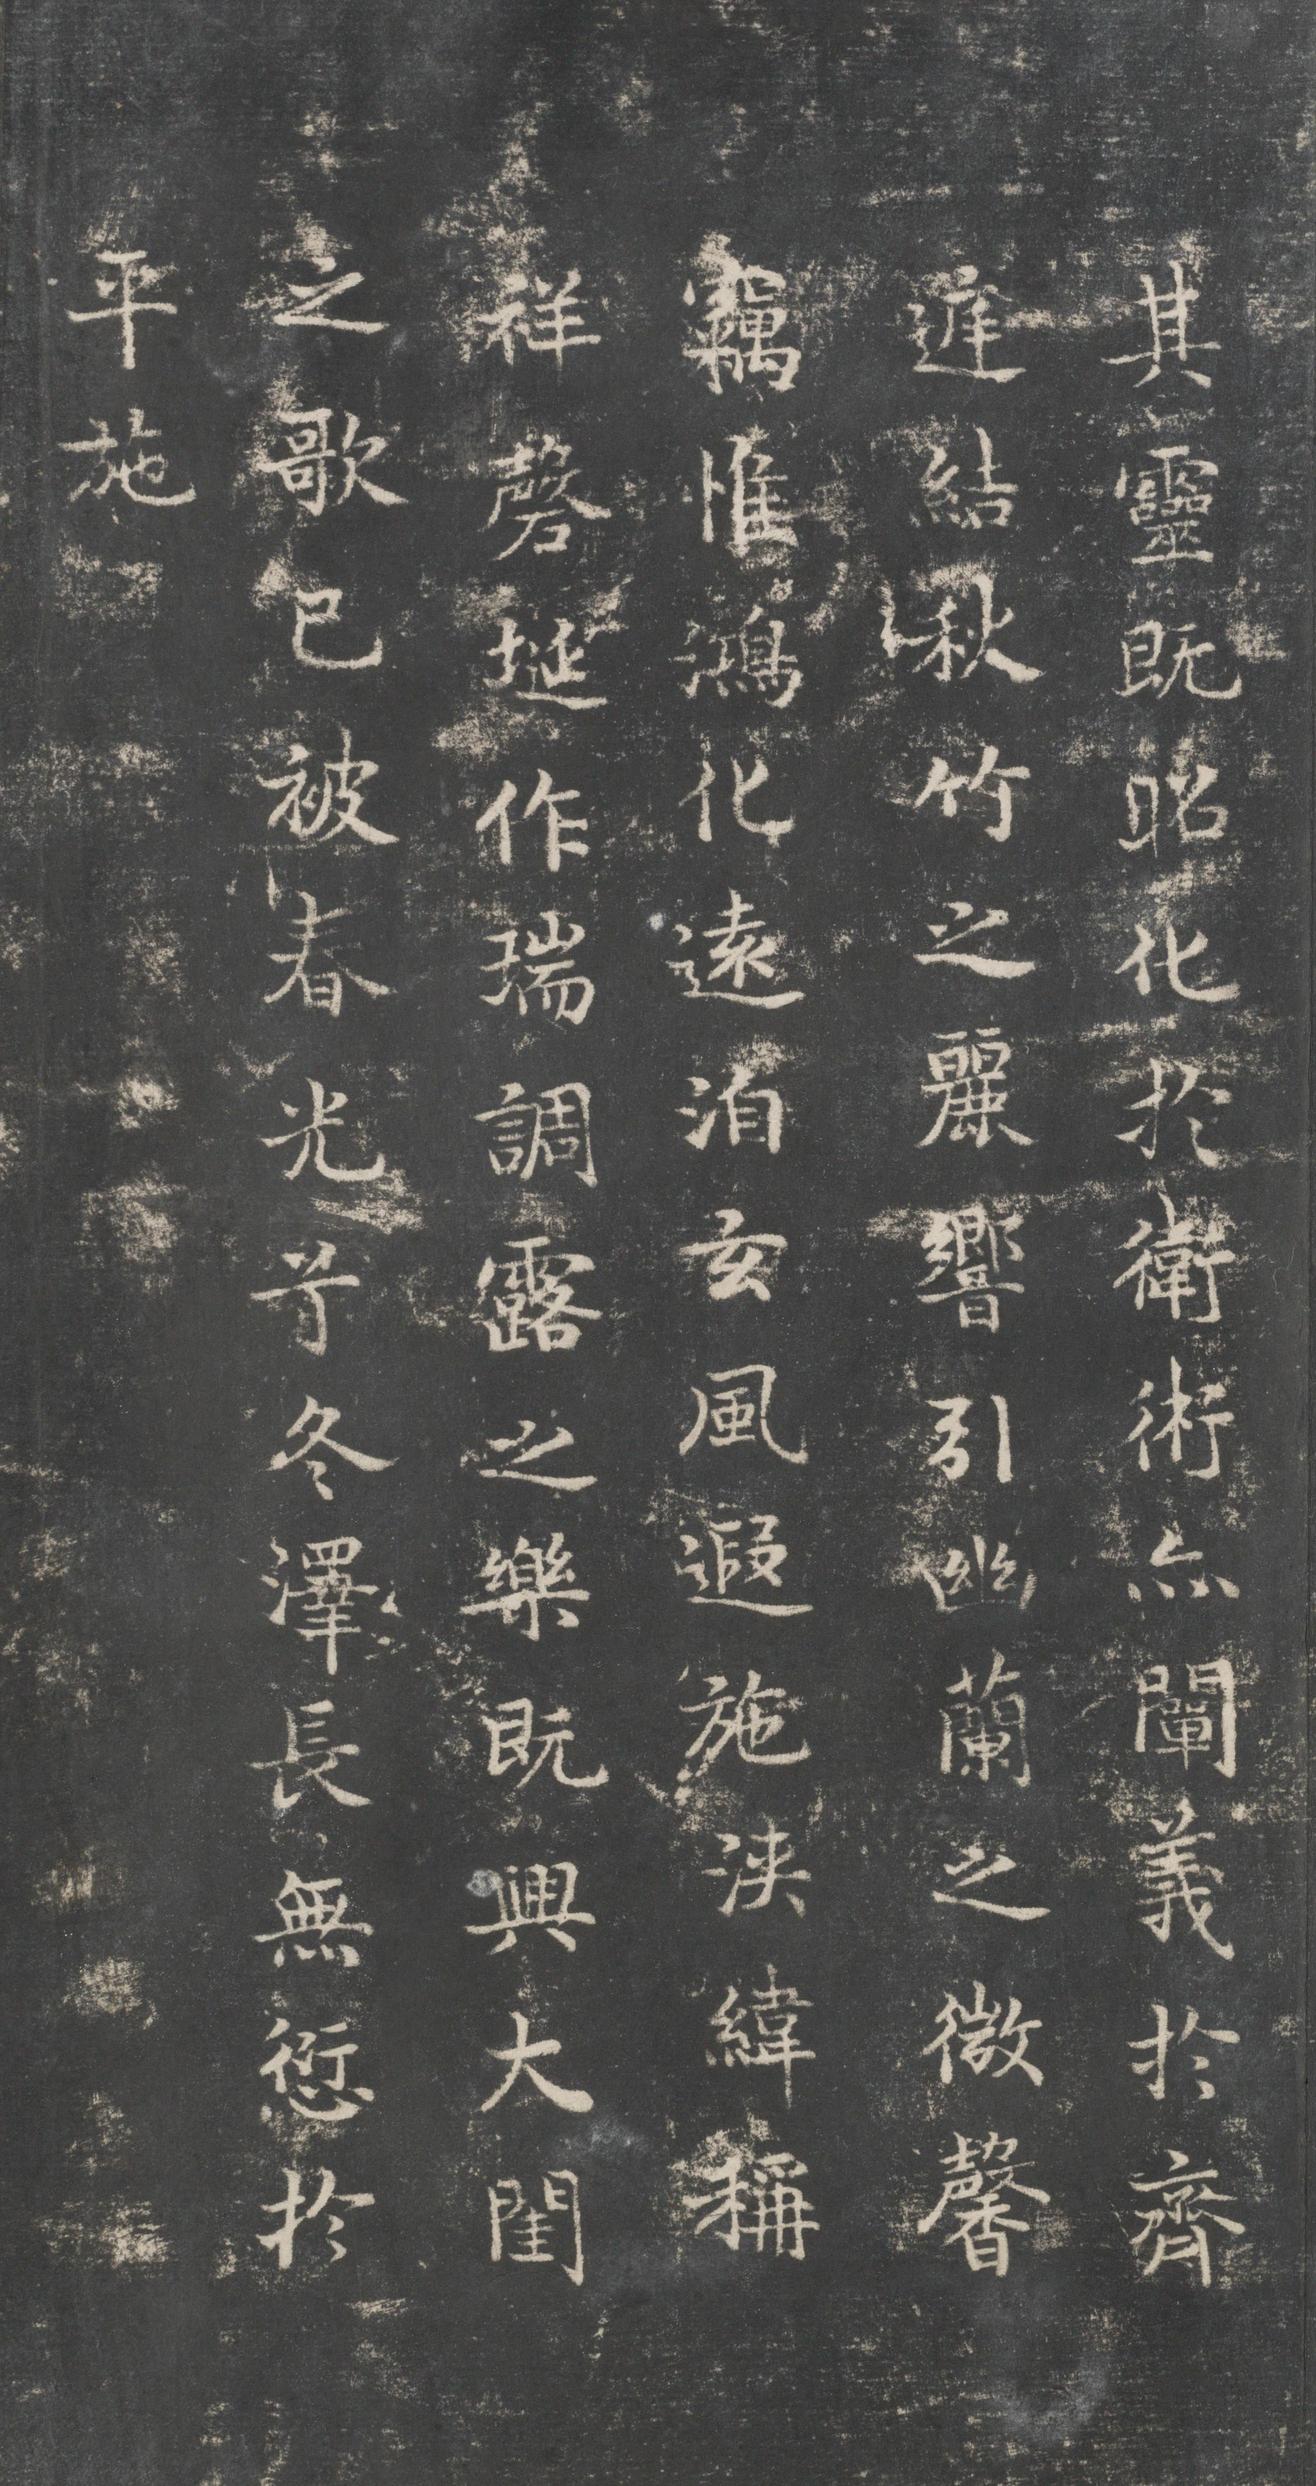 其靈既昭化於衛術亦闡義於齊
遅結秋竹之麗響引幽蘭之微馨
竊惟鴻化遠洎玄風遐施浹緯稱
祥磬埏作瑞調露之樂既興大閨
之歌已被春光芳冬澤長無愆於
平施